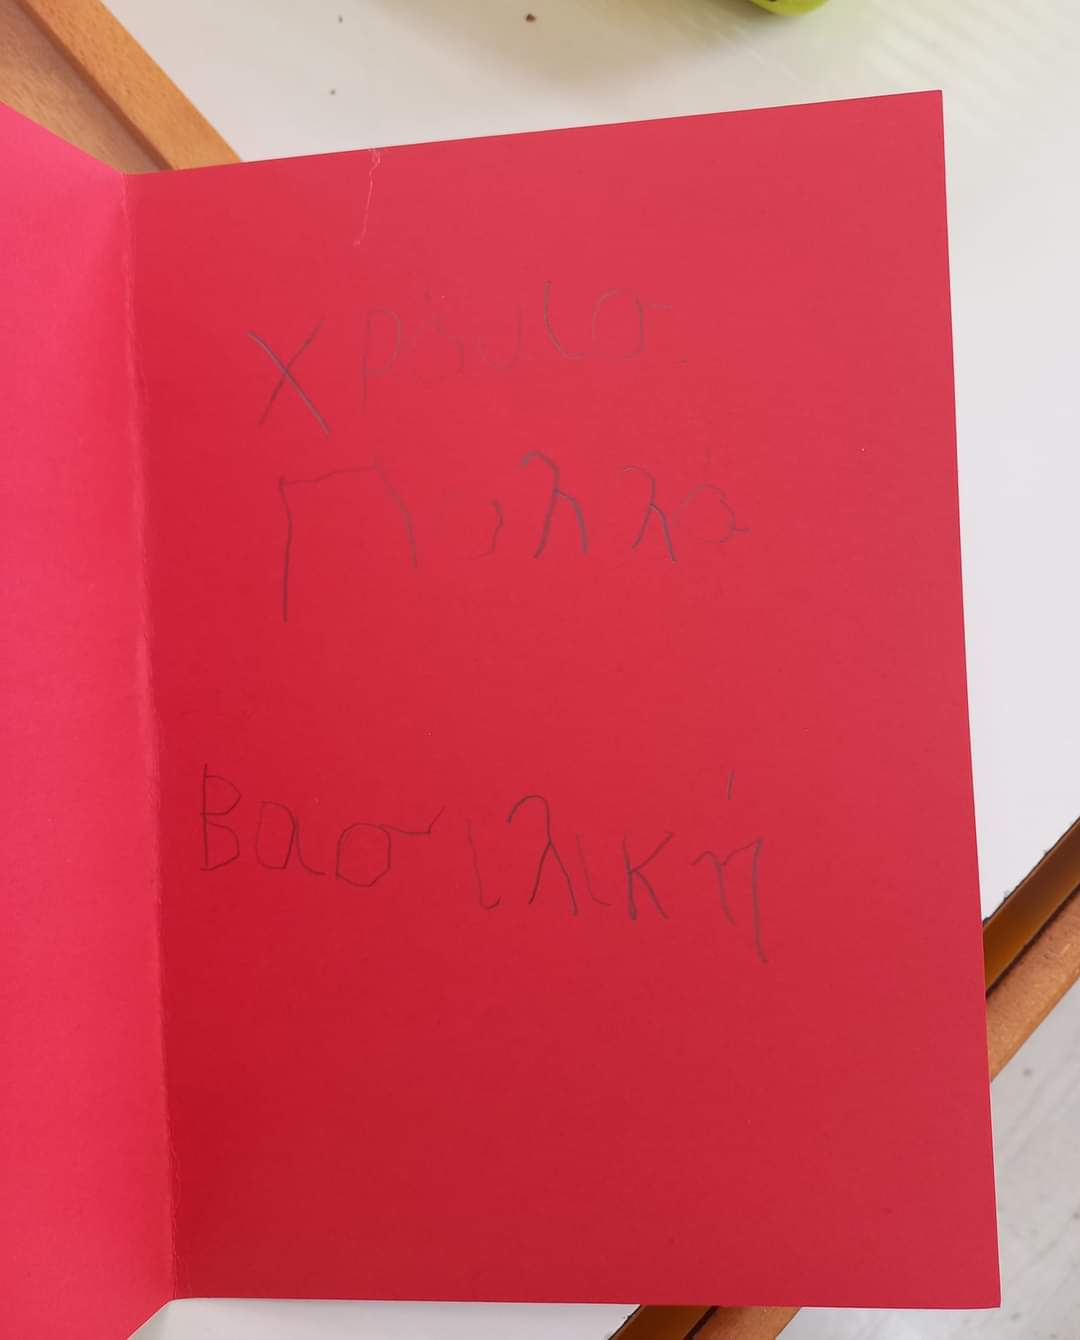 Χρόνια
Πολλά
Βασιλική